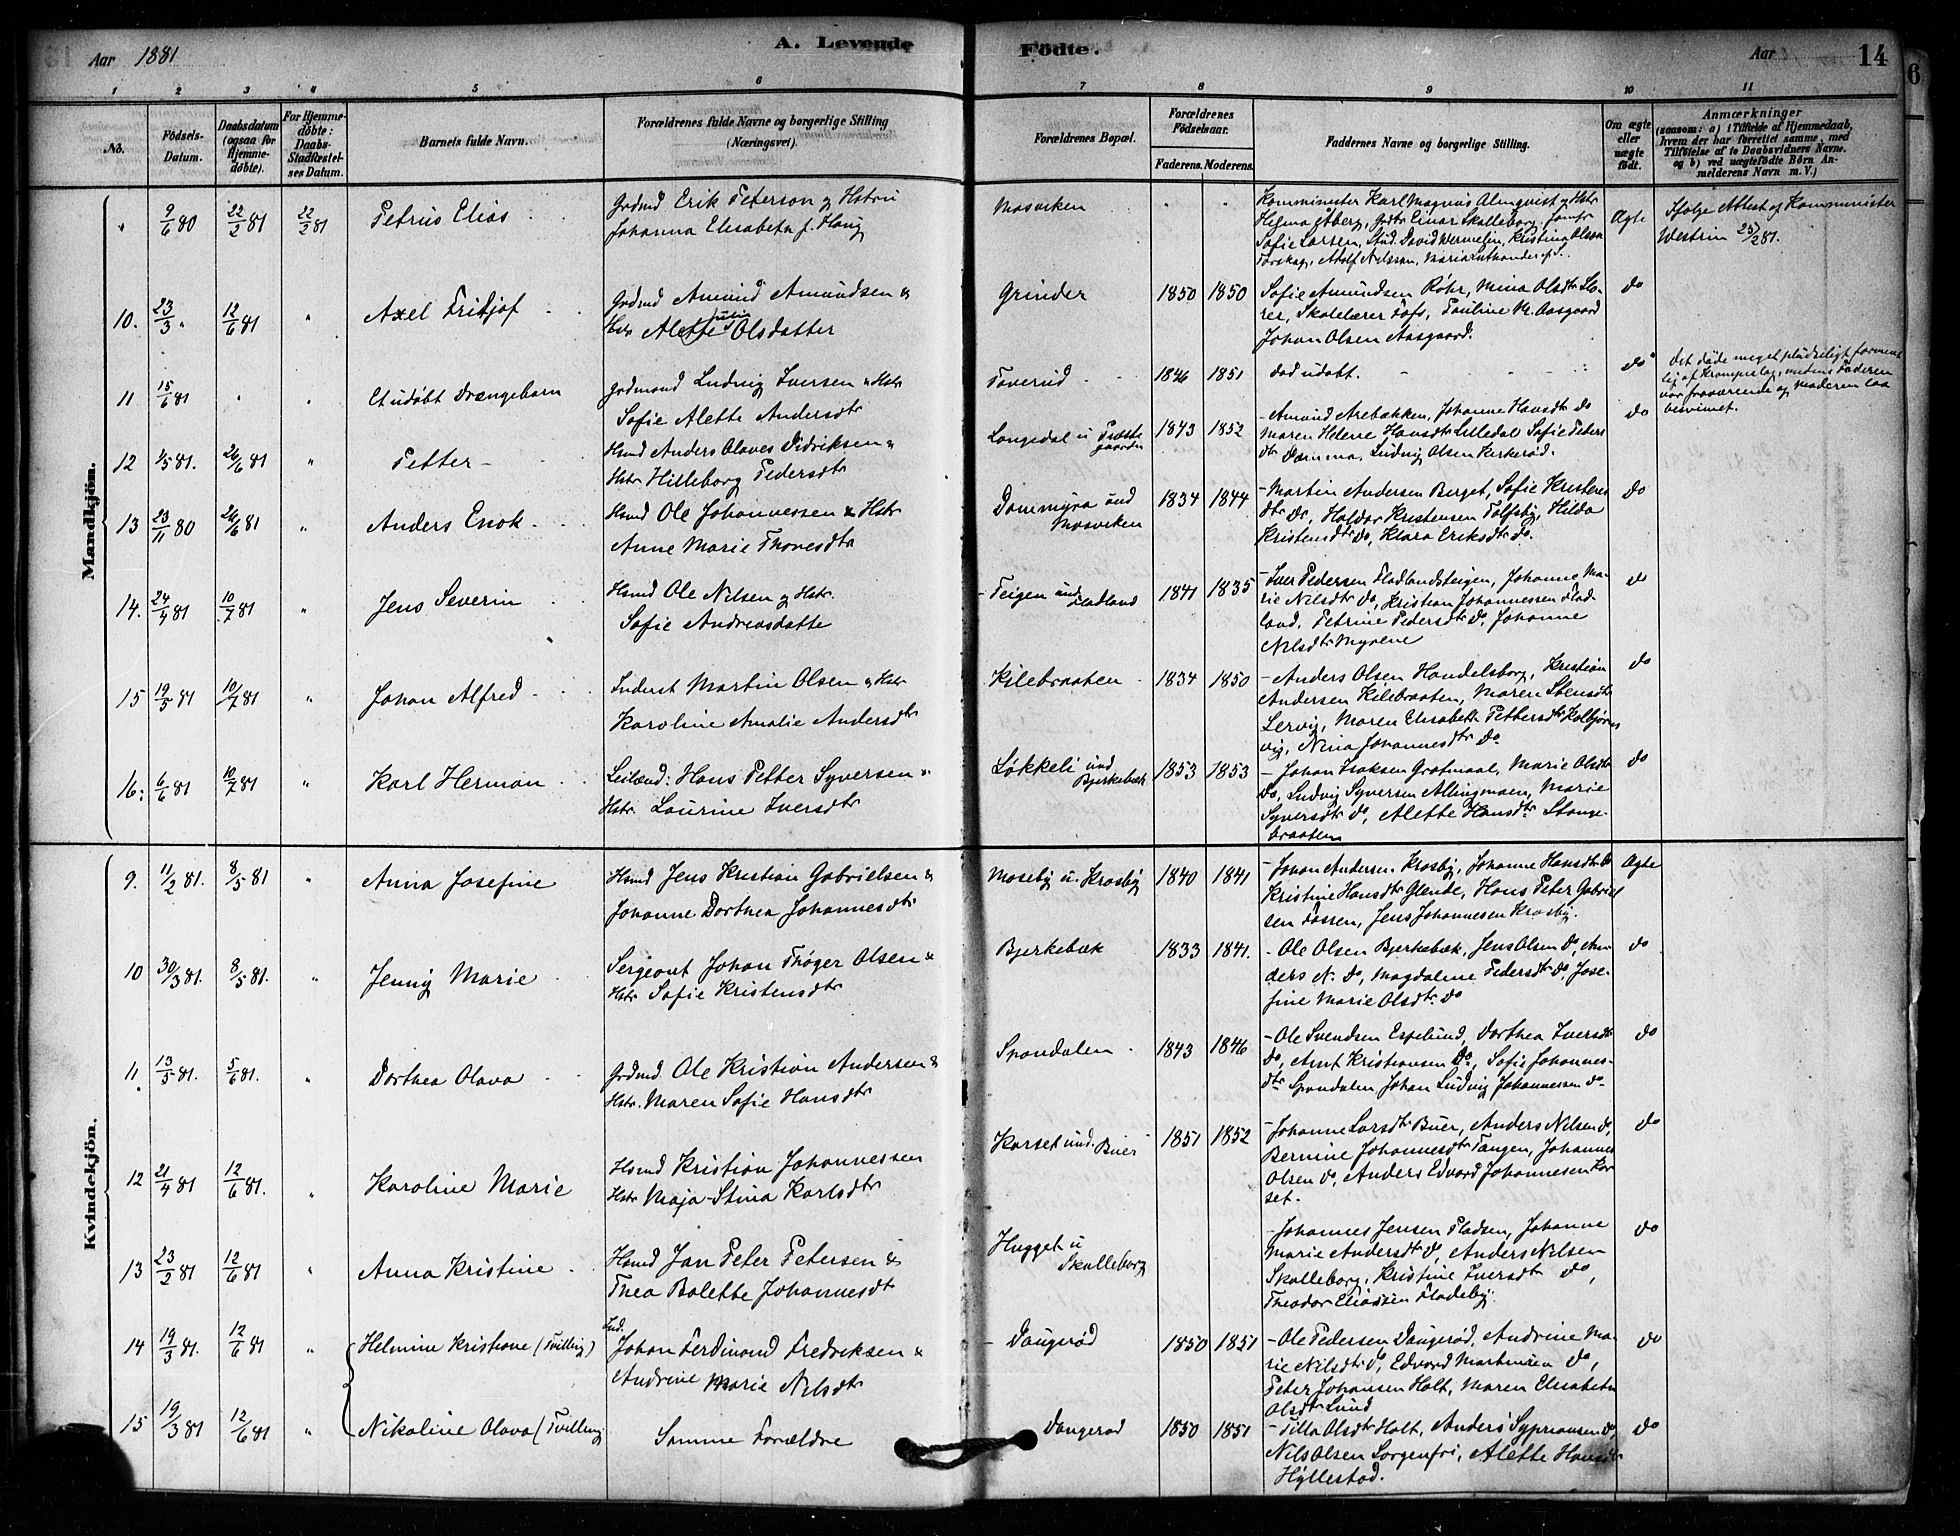 Aar 1881
A. Levende Födte.
Aar
14
6
1 2 3 4 5 6 7 8 9 10 11
No.
Födsels-Datum.
Daabsdatum (ogsaa for Hjemme-döbte).
For Hjemme-döbte: Daabs-Stadfæstel-ses Datum.
Barnets fulde Navn.
Forældrenes fulde Navne og borgerlige Stilling (Næringsvei).
Forældrenes Bopæl.
Forældrenes Födselsaar.
Faderens. Moderens.
Faddernes Navne og borgerlige Stilling.
Om ægte eller uægte födt.
Anmærkninger
(saasom: a) i Tilfælde af Hjemmedaab,
hvem der har forrettet samme, med
Tilföielse af to Daabsvidners Navne.
og b) ved uægtefödte Börn An-
melderens Navn m. V.)
Mandkjön.
" 9/6 80 22/2 81 22/2 81 Petrus Elias
Grdmd Erik Peterson og Hstru
Johanna Elisabeth f. Haug
Mosviken " "
Komminister Karl Magnus Almqvist og Hstr
Helma Ekberg, Einar Skalleborg, Jomfr
Sofie Larsen, Stud. David Wermelin, Kristina Olson
Torskog, Adolf Nilsson, Maria
Ægte
Ifølge Attest af Komminister
Westrin 25/2 81.
10. 23/3 " 12/6 81 " Axel Fritjof
Grdmd Amund Amundsen &
Hstr Alette Olsdatter
Grinder 1850 1850
Sofie Amundsen Röhr, Mina Olsdtr Lö-
rer, Skolelærer Fofs, Pauline M. Aasgaard
Johan Olsen Aasgaard.
do
11 15/6 81 " " Et udöbt Drengebarn
Grdmand Ludvig Iversen & Hstr
Sofie Alette Andersdtr
Toverud 1846 1851
död udöbt. - - -
do
Det døde meget pludseligt forment-
lig af Krampeslag, medens Faderen
var fraværende og Moderen laa
besvimet.
12 1/5 81. 26/6 81 " Petter -
Hsmd Anders Olaves Didriksen &
Hstr Hilleborg Pedersdtr
Langedal u Præste
gaarden 1843 1852
- Amund Arebækken, Johanne Hansdtr do
Maren Helene Hansdtr Lilledal Sofie Peders
dtr Damma, Ludvig Olsen Kerkeröd.
do
13 23/11 80 26/6 81 " Anders Enok
Hsmd Ole Johannessen & Hstr
Anne Marie Thoresdtr
Dammyra und
Mosviken 1834 1844
- Martin Andersen Berget, Sofie Kristens
dtr do, Haldor Kristensen Tolfsby, Hilda
Kristensdtr do, Klara Eriksdtr do.
do
14. 24/4 81 10/7 81 " Jens Severin
Hsmd Ole Nilsen og Hstr.
Sofie Andreasdatte
- Teigen und
Fladland 1841 1835
- Iver Pedersen Fladlandsteigen, Johanne Ma-
rie Nilsdtr do, Kristian Johannessen Flad-
land, Petrine Pedersdtr do, Johanne
Nilsdtr Myrene
do
15 19/5 81 10/7 81 " Johan Alfred
Inderst Martin Olsen & Hstr
Karoline Amalie Andersdtr
Kilebraaten 1834 1850
- Anders Olsen Handelsborg, Kristian
Andersen Kilebraaten, Maren Stensdtr
Lervig, Maren Elisabeth Pettersdtr Kolbjörns
vig, Nina Johannesdtr do
do
16. 6/6 81 10/7 81 " Karl Herman
Leilænd: Hans Petter Syversen &
Hstr. Laurine Iversdtr
Løkkeli und
Bjerkebæk 1853 1853
- Johan Isaksen Gratmaal, Marie Olsdtr
do, Ludvig Syversen Allingmoen, Marie
Syversdtr do, Alette Hansdtr Stange-
braaten
do
Kvindekjön.
9. 11/2 81. 8/5 81 " Anna Josefine
Hsmd Jens Kristian Gabrielsen &
Johanne Dorthea Johannesdtr
Moseby u. Krosby 1840 1841
- Johan Andersen Krosby, Johanne Hansdtr do
Kristine Hansdtr Glende, Hans Peter Gabriel
sen Fossen, Jens Johannesen Krosby.
Ægte
10 30/3 81. 8/5 81. " Jenny Marie
Sergeant Johan Thøger Olsen &
Hstr Sofie Kristensdtr
Bjerkebæk 1833 1841.
- Ole Olsen Bjerkebæk, Jens Olsen do, An-
ders N. do, Magdalene Pedersdtr do, Jose-
fine Marie Olsdtr do
do
11. 13/5 81. 5/6 81. " Dorthea Olava
Grdmd Ole Kristian Andersen &
Hstr. Maren Sofie Hansdtr
Spondalen 1843 1846
- Ole Svendsen Espelund, Dorthea Iversdtr
do, Amt Kristiansen do, Sofie Johannes-
dtr Spondalen Johan Ludvig Johannessen do
do
12 21/4 81 12/6 81. " Karoline Marie
Hsmd Kristian Johannessen
Hstr Maja-Stina Karlsdtr
Korset und. Buer 1851 1852
- Johanne Larsdtr Buer, Anders Nilsen do,
Bernine Johannesdtr Tangen, Johannes
Olsen do, Anders Edvard Johannesen Kor
set.
do
13 23/2 81 12/6 81 " Anna Kristine
Hsmd Jan Peter Petersen &
Thea Bolette Johannesdt
Hugget u
Skalleborg
- Johannes Jensen Pladsen, Johanne
Marie Andersdtr do, Anders Nilsen
Skalleborg, Kristine Iversdtr do,
Theodor Eliassen Fladeby.
do
14 19/3 81. 12/6 81 " Helmine Kristiane (Tvilling)
Ind.
Johan Ferdinand Fredriksen &
Andrine Marie Nilsdtr
- Daugerød 1850 1851
- Ole Pedersen Daugerød, Andrine Ma-
rie Nilsdtr do, Edvard Martinsen do,
Peter Johansen Holt, Maren Elisabeth
Olsdtr Lund
do
15 19/3 81 12/6 81 " Nikoline Olava (Tvilling
Samme Forældre
Daugerød 1850 1851
- Tilla Olsdtr Holt, Anders Syprionsen do,
Nils Olsen Sorgenfri, Alette Hansdtr
Hyllestad.
do